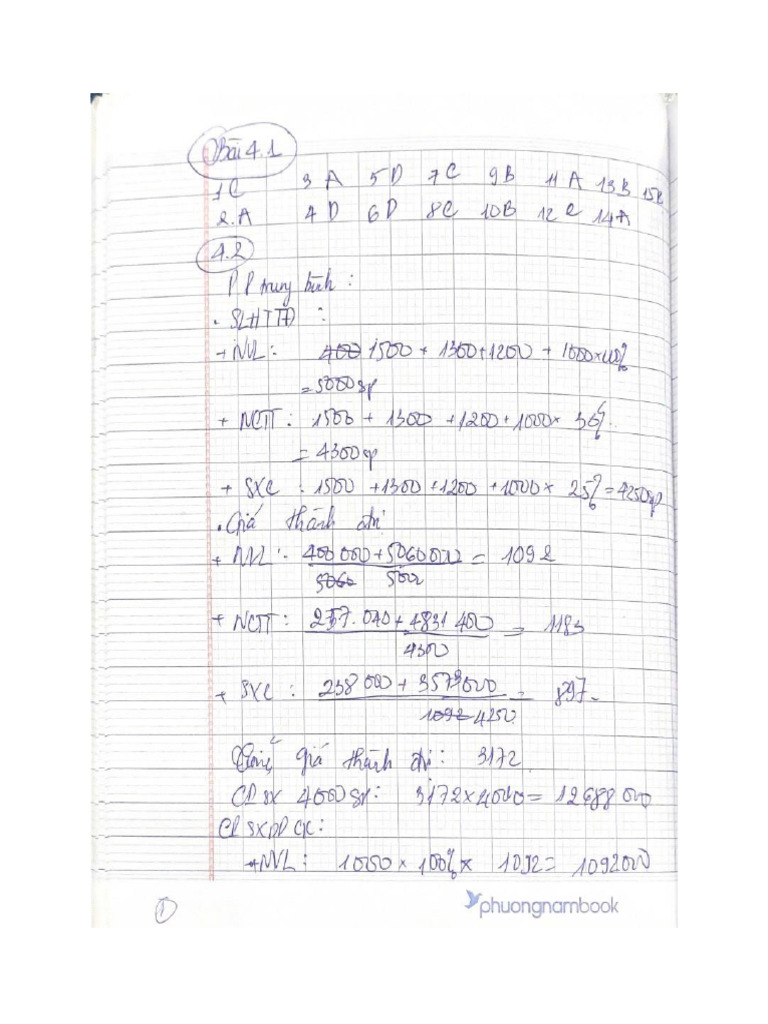 Bài 4.1
1C 3A 5D 7C 9B 11A 13B 15B
2.A 4D 6D 8C 10B 12C 14A
4.2
PP trung bình :
. SLHTTĐ :
+ NVL : 400 1500 + 1300 + 1200 + 1000 × 100%
= 5000 sp
+ NCTT : 1500 + 1300 + 1200 + 1000 × 30%
= 4300 sp
+ SXC : 1500 + 1300 + 1200 + 1000 × 25% = 4250 sp
. Giá thành đvị
+ NVL : 400 000 + 5060 000 = 1092
5060 5000
+ NCTT : 257.040 + 4831 400 = 1183
4300
+ SXC : 238 000 + 3573000 = 897
1092 4250
giá thành đvị : 3172
CPSX 4000 sp : 3172 × 4000 = 12688 000
CPSXDD CK :
+ NVL : 1000 × 100% × 1092 = 1092000
1
phuongnambook